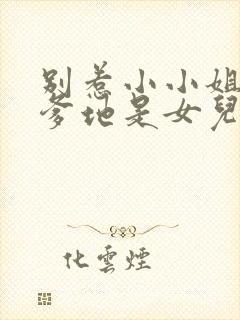 別惹小小姐
爹地是女兒
化雲煙